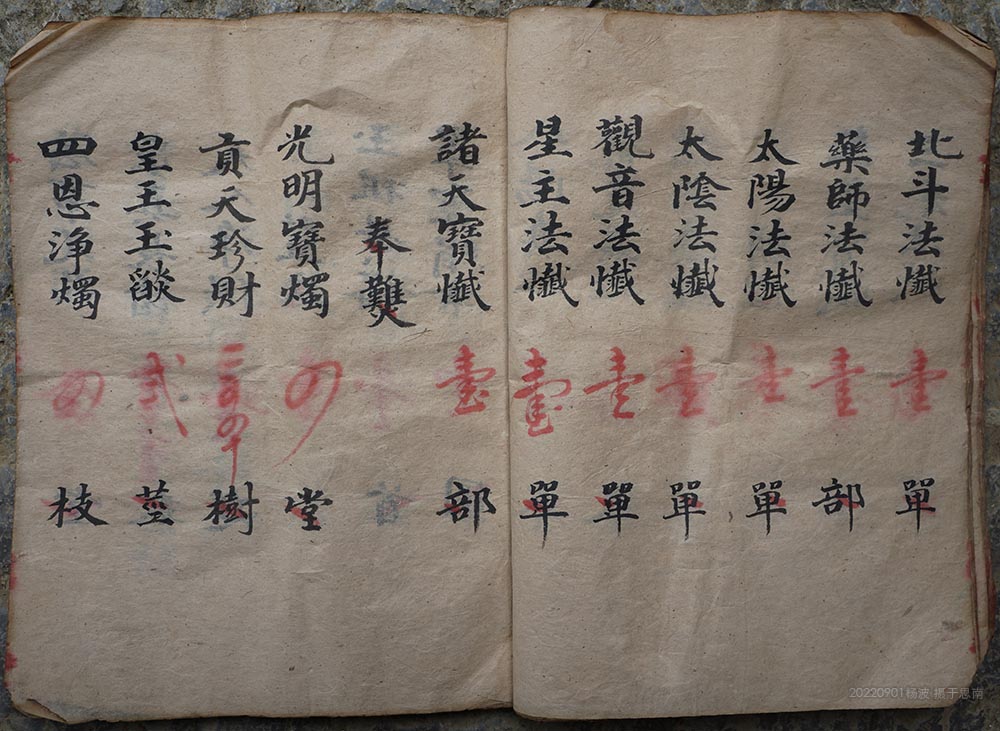 北斗法懺 壹 單
藥師法懺 壹 部
太陽法懺 壹 單
太陰法懺 壹 單
觀音法懺 壹 單
星主法懺 壹 單
諸天寶懺 壹 部
奉獎
光明寶燭 四 堂
貢天珍財 三百四十 樹
皇王玉燄 弍 莖
四恩浄燭 四 枝
20220901杨波 摄于思南